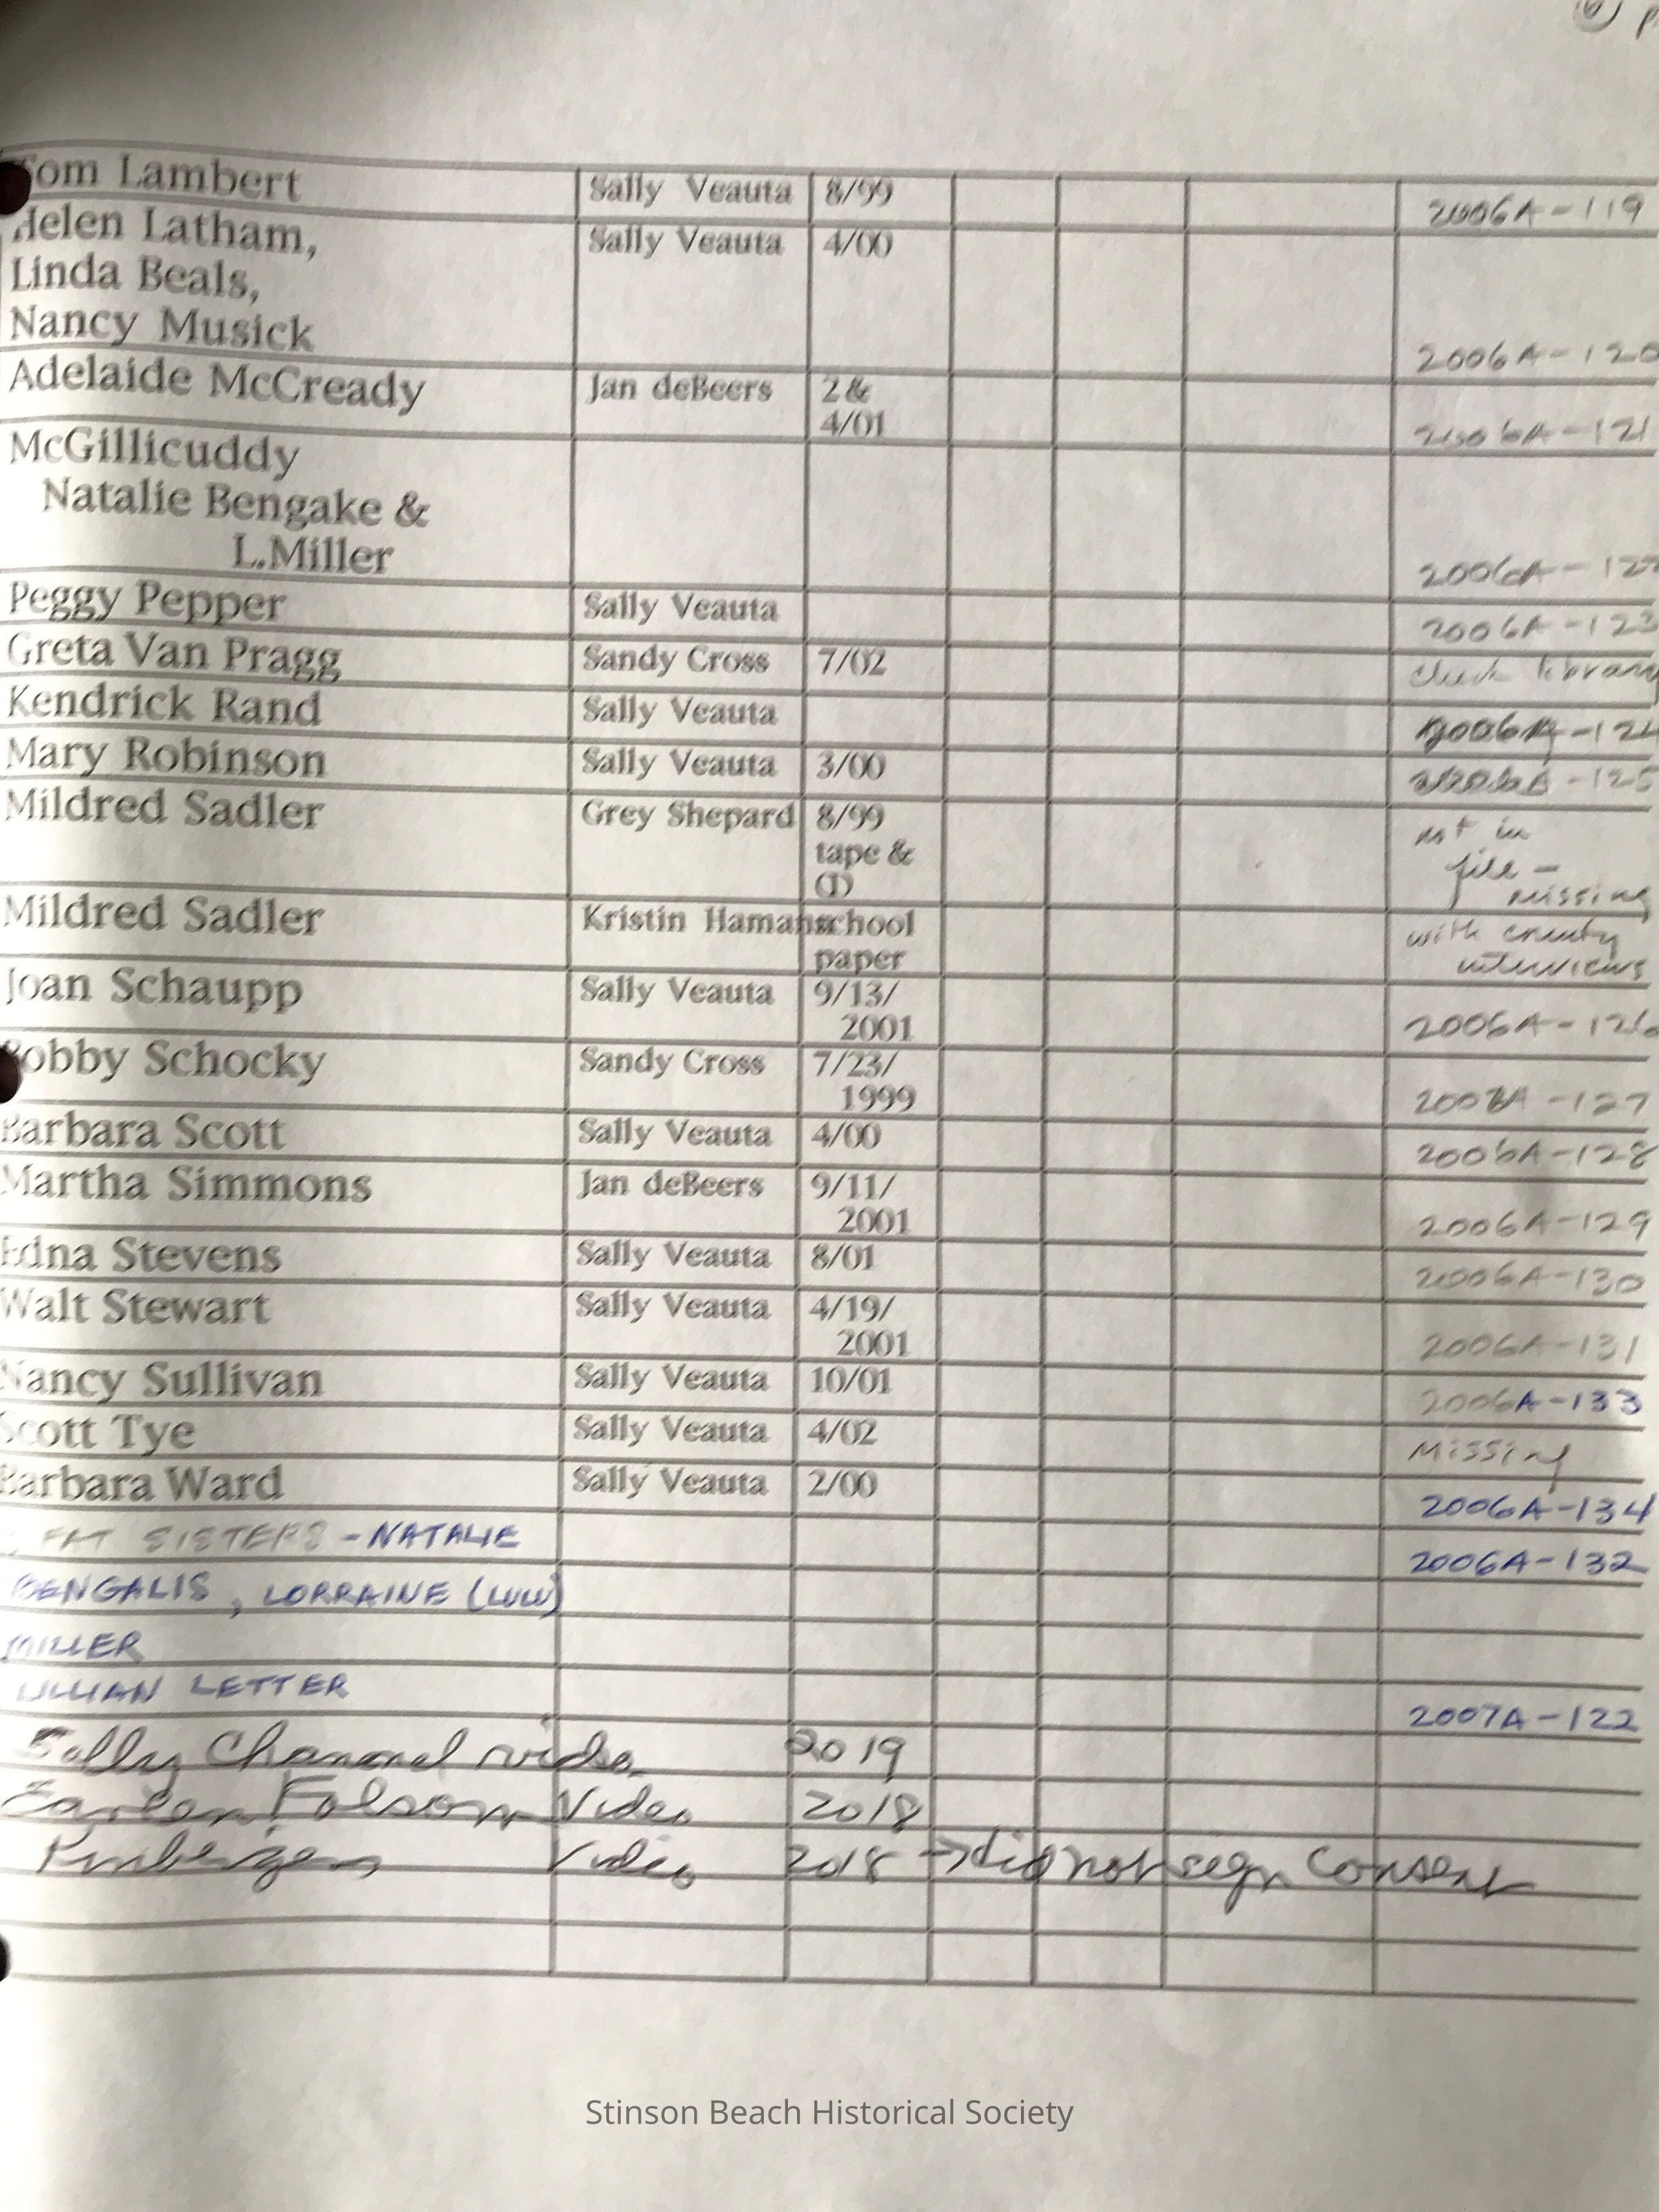 Tom Lambert Sally Veauta 8/99 2006A-119
Helen Latham, Sally Veauta 4/00
Linda Beals,
Nancy Musick 2006A-120
Adelaide McCready Jan deBeers 2 &
4/01 2006A-121
McGillicuddy
Natalie Bengake &
L.Miller 2006A-122
Peggy Pepper Sally Veauta 2006A-123
Greta Van Pragg Sandy Cross 7/02 check library
Kendrick Rand Sally Veauta 2006A-124
Mary Robinson Sally Veauta 3/00 2006A-125
Mildred Sadler Grey Shepard 8/99 not in
tape & file -
(1) missing
Mildred Sadler Kristin Hamann school with county
paper interviews
Joan Schaupp Sally Veauta 9/13/
2001 2006A-126
Bobby Schocky Sandy Cross 7/23/
1999 2006A-127
Barbara Scott Sally Veauta 4/00 2006A-128
Martha Simmons Jan deBeers 9/11/
2001 2006A-129
Edna Stevens Sally Veauta 8/01 2006A-130
Walt Stewart Sally Veauta 4/19/
2001 2006A-131
Nancy Sullivan Sally Veauta 10/01 2006A-133
Scott Tye Sally Veauta 4/02 Missing
Barbara Ward Sally Veauta 2/00 2006A-134
FAT SISTERS - NATALIE 2006A-132
BENGALIS, LORRAINE (LULU)
MILLER
LILLIAN LETTER 2007A-122
Sally Channel video 2019
Folsom Video 2018
Video 2018 → did not sign consent
Stinson Beach Historical Society